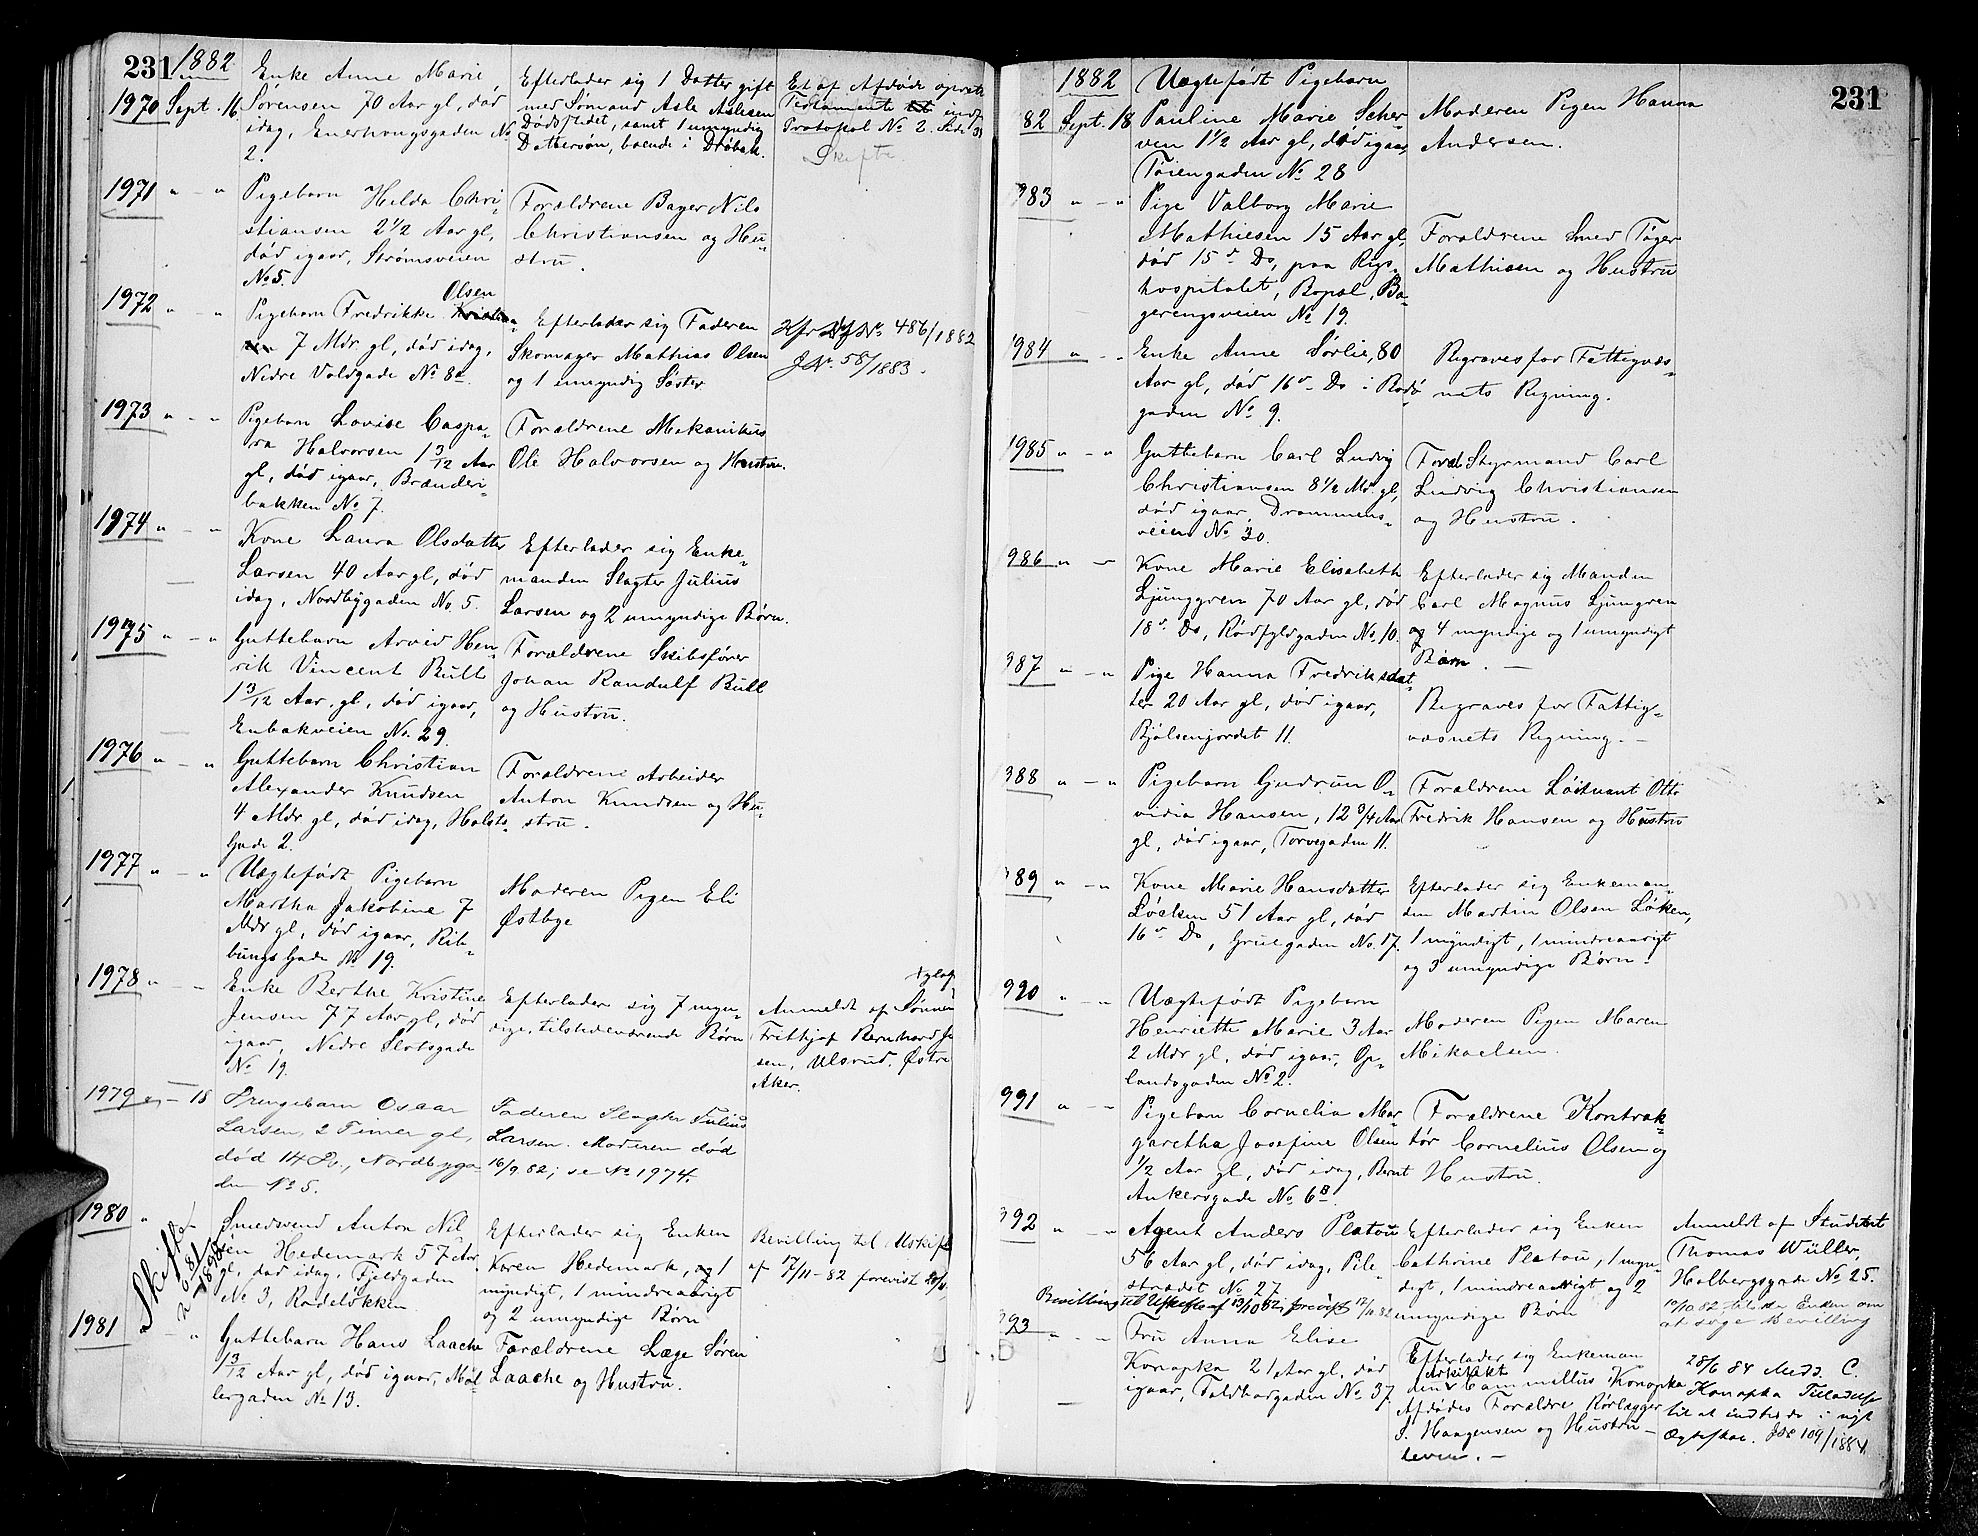 231
1882
1970 Sept. 16.
Enke Anne Marie
Sørensen 70 Aar gl, død
idag, Enerhougsgaden No
2.
Efterlader sig 1 Datter gift
med Sømand Asle Aslesen
Dødsstedet, samt 1 umyndig
Dattersøn, boende i Drøbak.
Et af Afdøde oprett
Testamente indf
Protokol No 2.
Skifte.
1971 " — "
Pigebarn Helda Chri-
stiansen 2 1/2 Aar gl,
død igaar, Strømsveien
No 5.
Forældrene Bager Nils
Christiansen og Hu-
stru.
1972 " — "
Olsen
Pigebarn Fredrikke
7 Mdr gl, død idag,
Nedre Voldgade No 8a
Efterlader sig Faderen
Skomager Mathias Olsen
og 1 umyndig Søster
Kfr No 486/1882
J.No. 58/1883.
1973 " — "
Pigebarn Lovise Caspa-
ra Halvorsen 1 3/12 Aar
gl, død igaar, Brænderi-
bakken No 7.
Forældrene Mekanikus
Ole Halvorsen og Hustru.
1974 " — "
Kone Laura Olsdatter
Larsen 40 Aar gl, død
idag, Nordbygaden No. 5.
Efterlader sig Enke-
manden Slagter Julius
Larsen og 2 umyndige Børn.
1975 " — "
Guttebarn Arvid Hen-
rik Vincent Bull
1 3/12 Aar. gl, død igaar,
Enebakveien No. 29.
Forældrene Skibsfører
Johan Randulf Bull
og Hustru.
1976 " — "
Guttebarn Christian
Alexander Knudsen
4 Mdr gl, død idag, Holsts
Gade 2.
Forældrene Arbeider
Anton Knudsen og Hu-
stru.
1977 " — "
Uægtefødt Pigebarn
Martha Jakobine 7
Mdr gl, død igaar, Rib-
bungs Gade No 19.
Moderen Pigen Eli
Østbye
1978 " — "
Enke Berthe Kristine
Jensen 77 Aar gl, død
igaar, Nedre Slotsgade
No 19.
Efterlader sig 7 myn-
dige, tilstedeværende Børn
Anmeldt af Sønnen
Frithjof Bernhard Je
sen, Ulsrud, Østre
Aker.
1979 " — 18
Drengebarn Oscar
Larsen, 2 Timer gl,
død 14 ds., Nordbyga
den No 5.
Faderen Slagter Julius
Larsen. Moderen død
16/9 82; se No 1974.
1980 "
Skifte
Smedsvend Anton Nil
sén Hedemark 57 Aar
gl, død idag, Fjeldgaden
No 3, Rodeløkken.
Efterlader sig Enken
Karen Hedemark, og 1
myndigt, 1 mindreaarigt
og 2 umyndige Børn
Bevilling til Uskift
af 17/11-82 forevist
1981 — "
Guttebarn Hans Laache
1 3/12 Aar gl, død igaar, Møl-
lergaden No 13.
Forældrene Læge Søren
Laache og Hustru.
231
1882
82 Sept. 18
Uægtefødt Pigebarn
Pauline Marie Scher-
ven 1 1/2 Aar gl, død igaar,
Tøiengaden No 28
Moderen Pigen Hanna
Andersen.
983 " — "
Pige Valborg Marie
Mathiesen 15 Aar gl,
død 15de Ds, paa Rigs-
hospitalet, Bopæl, Ba-
gerengsveien No 19.
Forældrene Smed Tøger
Mathiesen og Hustru
1984 " — "
Enke Anne Sørlie, 80
Aar gl, død 16de Ds i Bodø
gaden No 9.
Begraves for Fattigvæs-
nets Regning.
1985 " — "
Guttebarn Carl Ludvig
Christiansen 8 1/2 Mdr gl,
død igaar, Drammens-
veien No 30.
Foræl. Styrmand Carl
Ludvig Christiansen
og Hustru.
986 " —
Kone Marie Elisabeth
Ljunggren 70 Aar gl, død
18de Ds, Rødfyldgaden No 10.
Efterlader sig Manden
Carl Magnus Ljungren
og 4 myndige og 1 umyndigt
Børn. —
987 " — "
Pige Hanna Fredriksdat-
ter 20 Aar gl, død igaar,
Bjølsenjordet 11.
Begraves for Fattig-
væsnets Regning. —
988 " — "
Pigebarn Gudrun O-
vidia Hansen, 12 3/4 Aar
gl, død igaar, Torvegaden 11.
Forældrene Løitnant Otto
Fredrik Hansen og Hustru
989 " — "
Kone Marie Hansdatter
Løcken 51 Aar gl, død
16de Ds, Gruegaden No. 17.
Efterlader sig Enkeman-
den Martin Olsen Løken,
1 myndigt, 1 mindreaarigt
og 3 umyndige Børn.
990 " — "
Uægtefødt Pigebarn
Henriette Marie 3 Aar
2 Mdr gl, død igaar, Op-
landsgaden No 2.
Moderen Pigen Maren
Mikaelsen.
991 " — "
Pigebarn Cornelia Mar
garetha Josefine Olsen
1/2 Aar gl, død idag, Bernt
Ankersgade No 6B
Forældrene Kontrak-
tør Cornelius Olsen og
Hustru.
992 " — "
Agent Anders Platou
56 Aar gl, død idag, Pile-
strædet No 27
Bevilling til Uskifte af 13/10 82, forevist 17/11 82
Efterlader sig Enken
Cathrine Platou, 1 myn-
digt, 1 mindreaarigt og 2
umyndige Børn
Anmeldt af Student
Thomas Wüller,
Holbergsgade No 25.
10/10 82 tilsta Enken om
at søge Bevilling
993 " — "
Fru Anna Elise
Konopka 21 Aar gl, død
igaar, Toldbodgaden No 37.
Efterlader sig Enkeman
Arkitekt
den Cammillus Konopka
Afdødes Forældre Rørlægger
J. Haagensen og Hustru
lever. —
28/6 84 Medd. C.
Konopka Tilladelse
til at indtræde i nyt
Ægteskab. JNo 109/1884